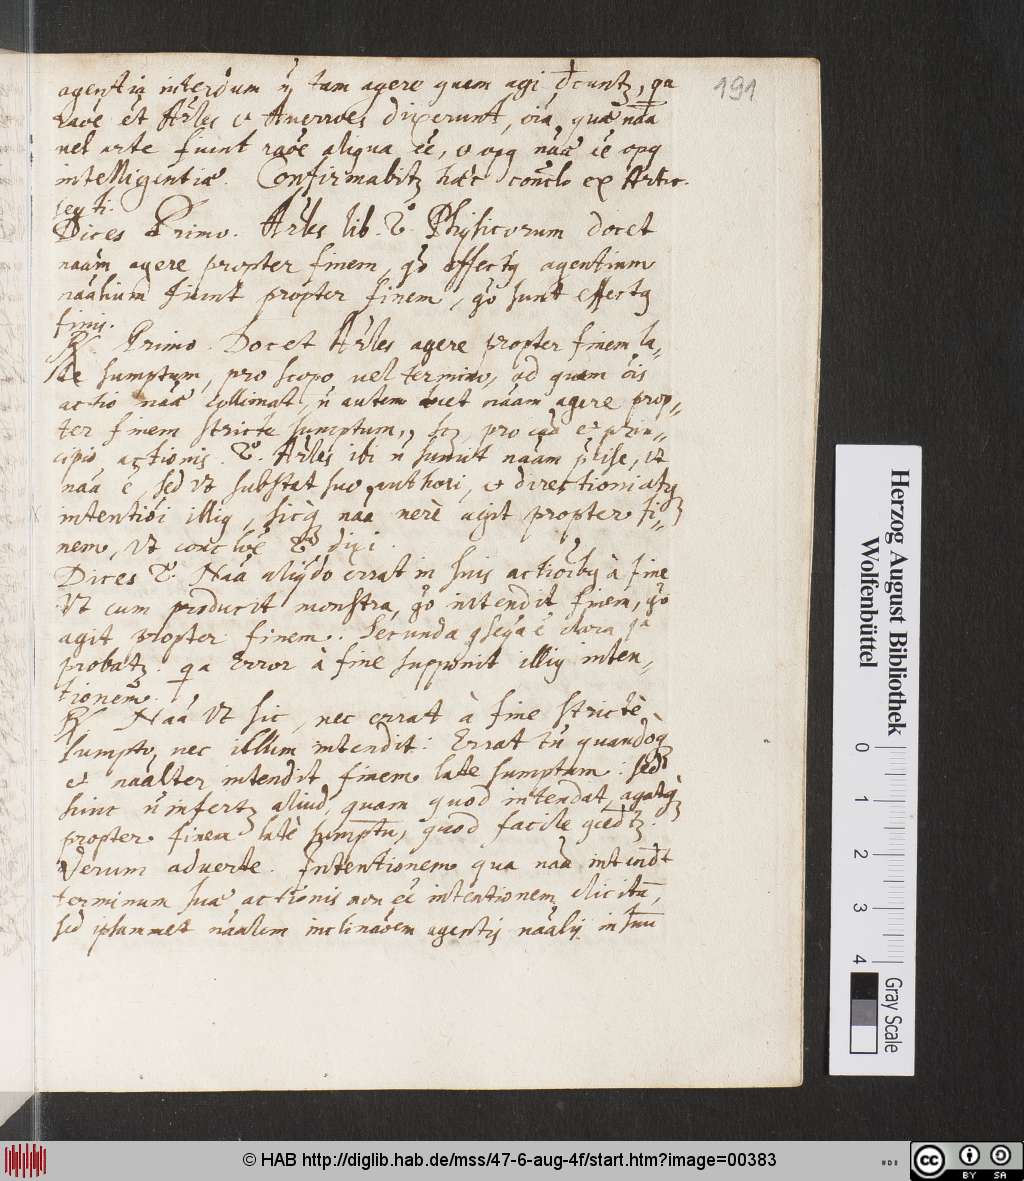 agentia interdum ñ tam agere quam agi dicunt, qa
raõe et Arles et Averroes dixerunt, oia, quæ naa
vel arte fiunt raõe aliqua eē, et opq naæ eē opq
intelligentiæ. Confirmabit hæc conclo ex Artic.
seqti.
Dices Primo. Arles lib. 2. Physicorum docet
naam agere propter finem, go effectq agentium
naalium fiunt propter finem, go sunt effectq
finis.
R/ Primo. Docet Arles agere propter finem la„
te sumptum, pro scopo vel termino, ad quem ois
actio naæ collimat, ñ autem naam agere prop„
ter finem stricte sumptum, pro caa et prin„
cipio actionis. 2o. Arles ibi ñ sumit naam pñse, ut
naa ē, sed ut substat suo authori, et directioni atq
intentioi illiq, sicq naa verè agit propter fi„
nem, ut conclõe 2a dixi.
Dices 2. Naa aliqdo errat in suis actioibq à fine
ut cum producit monstra, go intendit finem, go
agit propter finem. Secunda qseqa ē clara
probat. qa Error à fine supponit illiq inten„
tionem.
R/ Naa ut sic, nec errat à fine strictè
sumpto, nec illum intendit: Errat tñ quandoq
et naalter intendit finem late sumptum: sed
hinc ñ infert aliud, quam quod intendat, agatq
propter finem latè sumptu, quod facile qcedit.
Verum adverte. Intentionem qua naa intendit
terminum suæ actionis non eē intentionem elicita,
sed ipsammet naalem inclinaõem agentis naalis in suu
191
Herzog August Bibliothek
Wolfenbüttel
0 1 2 3 4
Gray Scale
© HAB http://diglib.hab.de/mss/47-6-aug-4f/start.htm?image=00383
cc BY SA